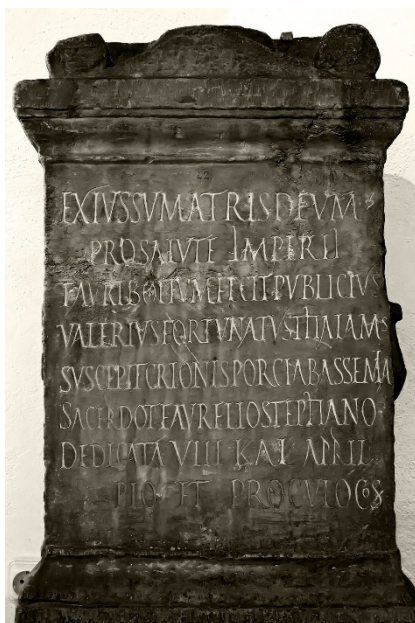 EX IVSSV MATRIS DEVM
PRO SALVTE IMPERII
TAVRIBOLIVM FECIT PVBLICIVS
VALERIVS FORTVNATVS THALAMAS
SVSCEPIT CRIONIS PORCIA BASSEMIA
SACERDOTE AVRELIO STEPHANO
DEDICATA VIII KAL APRIL
PIO ET PROCVLO COS